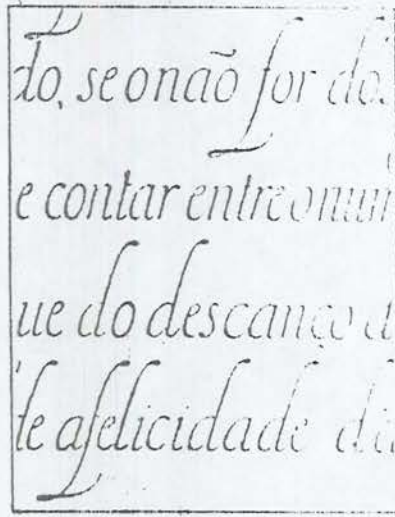 do, se o não for do
e contar entre o num
ue do descanço a
te a felicidade da